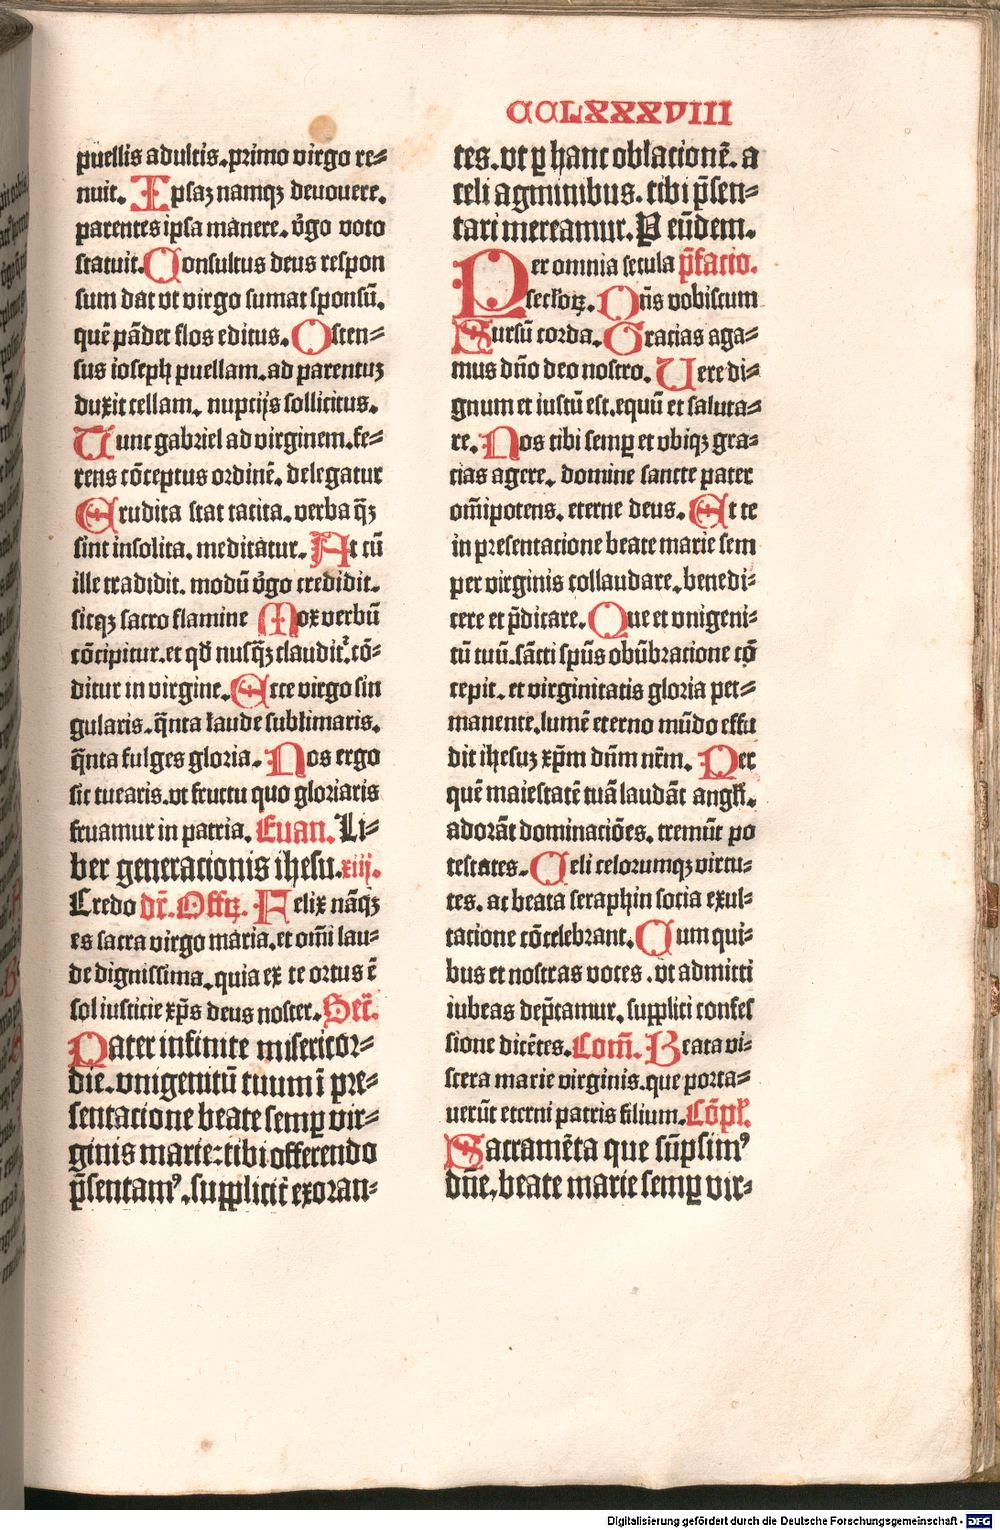 CCLXXXVIII
puellis adultis. primo virgo re⸗
nuit. Ipsaz namqz deuouere.
parentes ipsa manere. v̄go voto
statuit. Consultus deus respon
sum dat vt virgo sumat sponsū.
quē pādet flos editus. Osten⸗
sus ioseph puellam. ad parentuz
duxit cellam. nuptijs sollicitus.
Tunc gabriel ad virginem. fe⸗
rens cōceptus ordinē. delegatur
Erudita stat tacita. verba q̄z
sint insolita. meditātur. At cū
ille tradidit. modū v̄go credidit.
sicqz sacro flamine Mox verbū
cōcipitur. et qd̄ nusq̄z claudit᷑. cō⸗
ditur in virgine. Ecce virgo sin
gularis. q̄nta laude sublimaris.
q̄nta fulges gloria. Nos ergo
sic tuearis. vt fructu quo gloriaris
fruamur in patria. Euan. Li⸗
ber generacionis ihesu. xiij.
Credo dr̄. Offꝝ. Felix nāqz
es sacra virgo maria. et om̄i lau⸗
de dignissima. quia ex te ortus ē
sol iusticie xp̄s deus noster. Secr̄.
Pater infinite misericor⸗
die. vnigenitū tuum ī pre⸗
sentacione beate semꝑ vir⸗
ginis marie: tibi offerendo
p̄sentamꝰ. suppliciť exoran⸗
tes. vt ꝑ hanc oblacionē. a
celi agminibus. tibi p̄sen⸗
tari mereamur. P eūdem.
Per omnia secula p̄facio.
secłoꝝ. Dn̄s vobiscum
Sursū corda. Gracias aga⸗
mus dn̄o deo nostro. Uere di⸗
gnum et iustū est. equū et saluta⸗
re. Nos tibi semꝑ et vbiqz gra⸗
cias agere. domine sancte pater
om̄ipotens. eterne deus. Et te
in presentacione beate marie sem
per virginis collaudare. benedi⸗
cere et p̄dicare. Que et vnigeni⸗
tū tuū. sācti sp̄us obūbracione cō
cepit. et virginitatis gloria per⸗
manente. lumē eterno mūdo effu
dit ihesuz xp̄m dn̄m nr̄m. Per
quē maiestatē tuā laudāt angłi.
adorāt dominaciōes. tremūt po
testates. Celi celorumqz virtu⸗
tes. ac beata seraphin socia exul⸗
tacione cōcelebrant. Cum qui⸗
bus et nostras voces. vt admitti
iubeas dep̄camur. supplici confes
sione dicētes. Com̄. Beata vi⸗
scera marie virginis. que porta⸗
uerūt eterni patris filium. Cōpł.
Sacramēta que sūpsimꝰ
dn̄e. beate marie semꝑ vir⸗
Digitalisierung gefördert durch die Deutsche Forschungsgemeinschaft - DFG